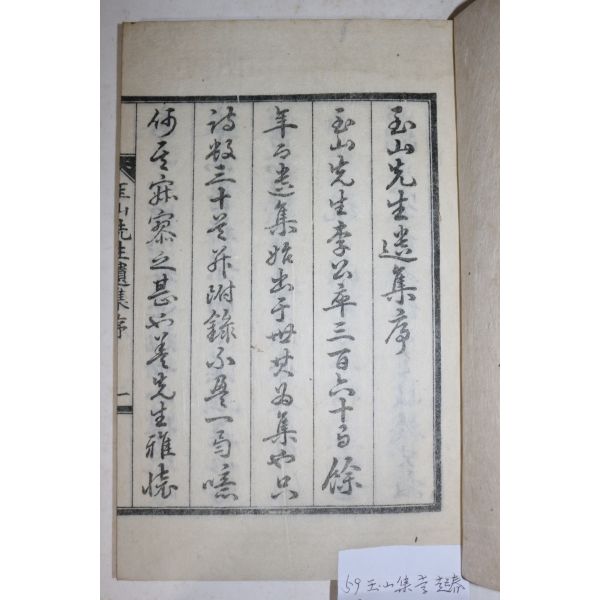 玉山先生遺集序
玉山先生李公卒三百六十有餘
年而遺集始出于世其为集也只
詩數三十首并附錄不一弓噫
何其寂寥之甚也蓋先生雅懷
玉山先生遺集序 一
59 玉山集